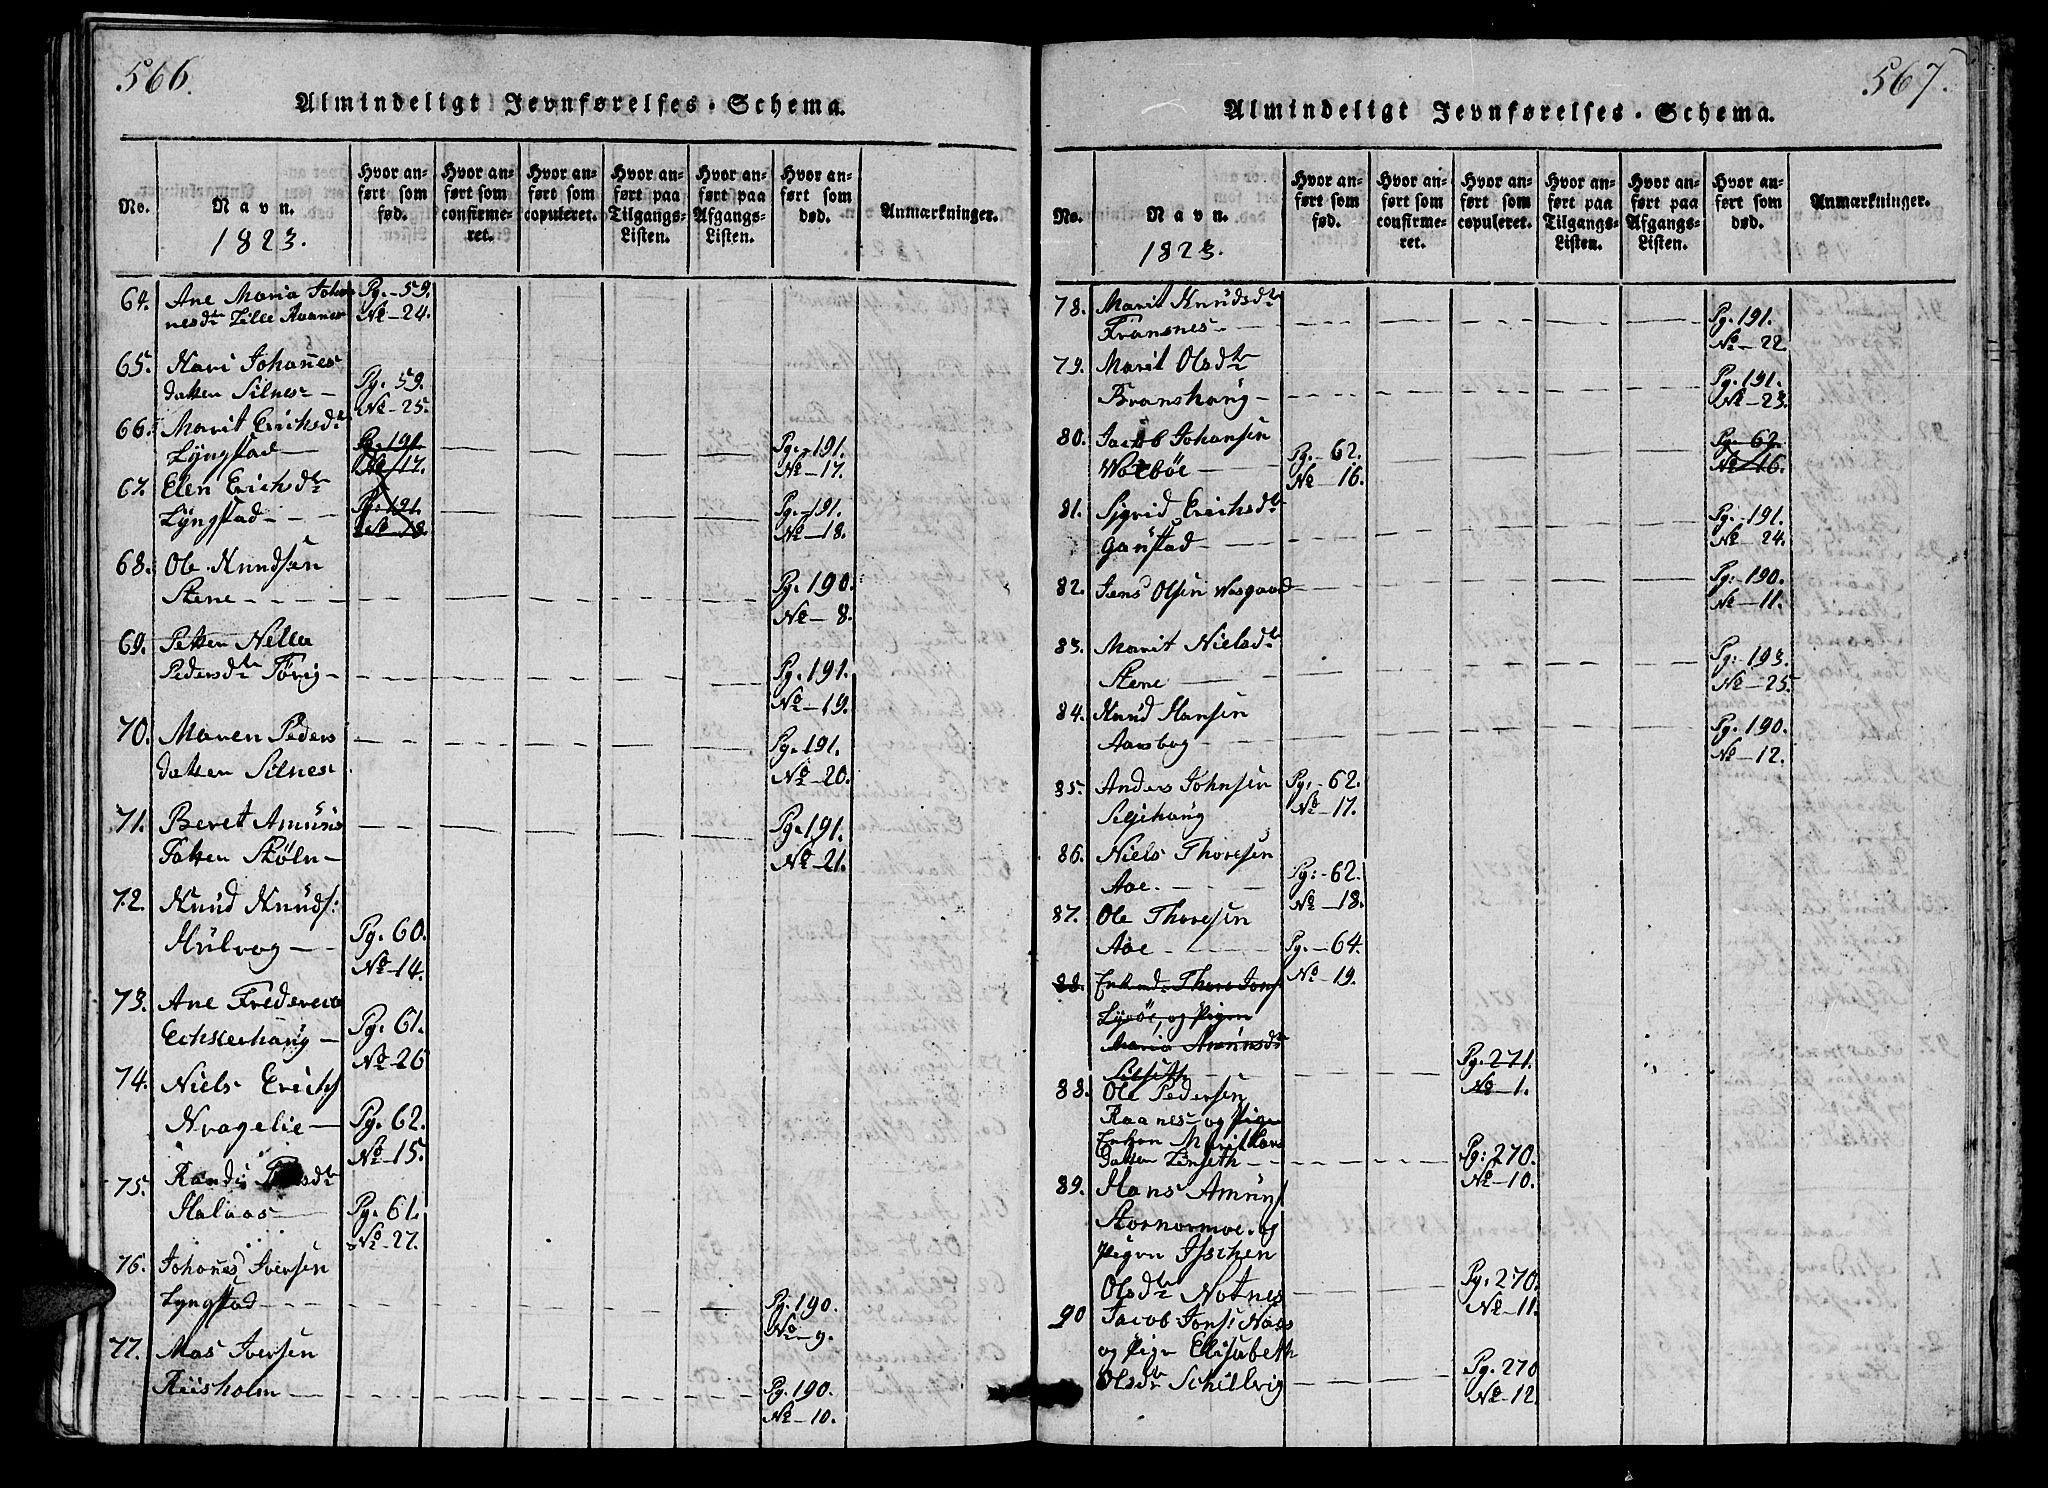 566.
Almindeligt Jevnførelses-Schema.
No.
Navn.
1823.
Hvor anført som fød.
Hvor anført som confirmeret.
Hvor anført som copuleret.
Hvor anført paa Tilgangs-Listen.
Hvor anført paa Afgangs-Listen.
Hvor anført som død.
Anmærkninger.
64. Ane Maria Johan Pg. 59.
nesdtr Lille No 24.
65. Kari Johanes
datter Silnes Pg. 59. No 25.
66. Marit Erichsdtr
Lyngstad Pg. 191. No 17. Pg. 191. No 17.
67. Elen Erichsdtr
Lyngstad Pg. 191. No 18. Pg. 191. No 18.
68. Ole Knudsen
Stene Pg. 190. No 8.
69. Petter Nella
Pedersdtr Förig Pg. 191. No 19.
70. Maren Peders
datter Silnes Pg. 191. No 20.
71. Beret Amuns
datter Skoln Pg. 191. No 21.
72. Knud Knuds:
Hulvog Pg. 60. No 14.
73. Ane Frederica
Echrehaug Pg. 61. No 26
74. Niels Erichs
Pg. 62. No 15.
75. Randi
Halaas Pg. 61. No 27.
76. Johanes Iversen
Lyngstad Pg. 190. No 9.
77. Mas Iversen
Riisholm Pg. 190. No 10.
567.
Almindeligt Jevnførelses-Schema.
No.
Navn.
1823.
Hvor anført som fød.
Hvor anført som confirmeret.
Hvor anført som copuleret.
Hvor anført paa Tilgangs-Listen.
Hvor anført paa Afgangs-Listen.
Hvor anført som død.
Anmærkninger.
78. Marit Knudsdtr
Fransnes Pg. 191. No 22.
79. Marit Olsdtr
Branshaug Pg. 191. No 23.
80. Jacob Johansen
Pg. 62. No 16. Pg. 62. No 16.
81. Sigrid Erichsdtr
Gaustad Pg. 191. No 24.
82. Jens Olsen Wesgaard Pg. 190. No 11.
83. Marit Nielsdtr
Stene Pg. 193. No 25.
84. Knud Hansen
Aarsbog Pg. 190. No 12.
85. Anders Johnsen
Seljehaug Pg. 62. No 17.
86. Niels Thoresen
Aae. Pg. 62. No 18.
87. Ole Thoresen
Aae Pg. 64. No 19.
88. Enkemd. Thore Jons
og Pigen
Maria Amunsdr
Silseth Pg. 271. No 1.
88. Ole Pedersen
Raanes og Pigen
Enken Marit Lars
datter Linseth Pg. 270. No 10.
89. Hans Amuns
Stornormoe og
Pigen
Olsdtr Notnes Pg. 270. No 11.
90 Jacob Jons: Naas
og Pigen Elisabeth
Olsdtr Schillvig Pg. 270 No 12